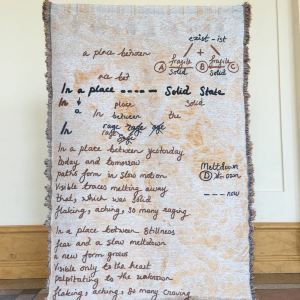 exist - ist
a place between
fragile + fragile
A solid B solid C
In a place ----- Solid State
In a place Solid
In between the
In rage rage
In a place between yesterday
today and tomorrow
paths form in slow motion
Visible traces melting away
that, which was solid
flaking, aching, so many raging
Meltdown
D
--- now
In a place between Stillness
fear and a slow meltdown
a new form grows
Visible only to the heart
Palpitating to the unknown
flaking, aching, so many craving